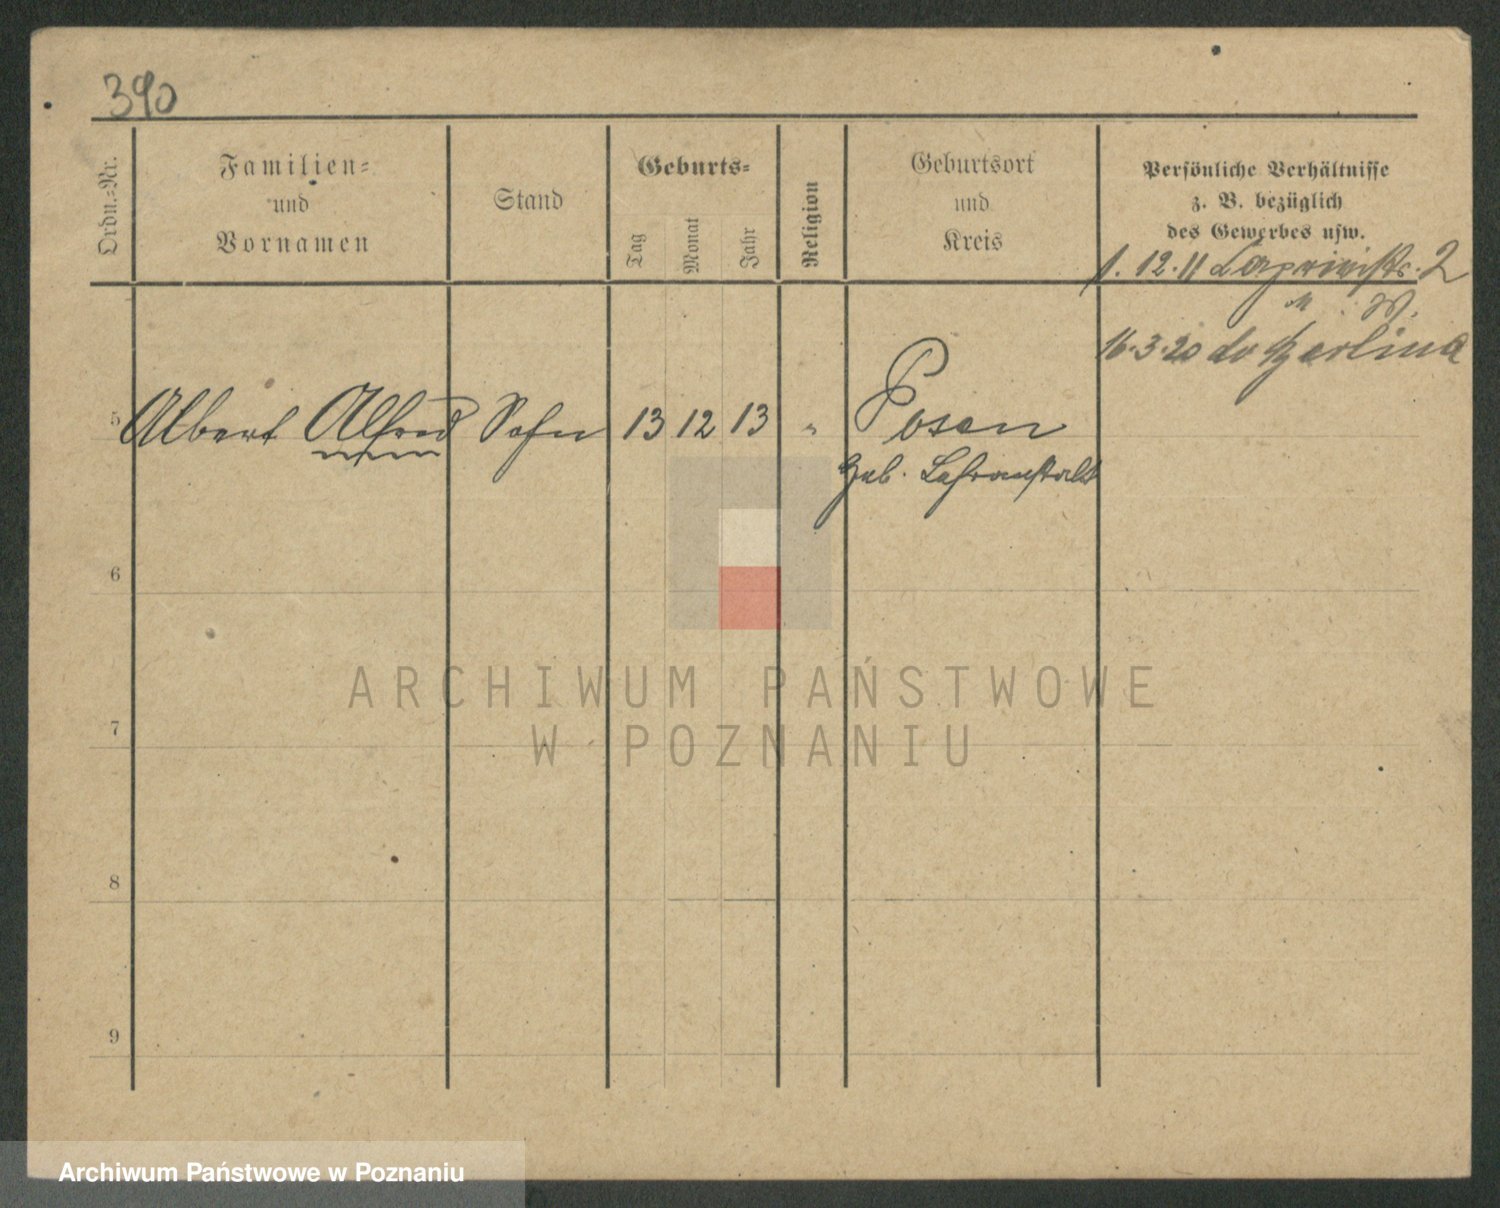 390
Ordn.=Nr.
Familien=
und
Vornamen
Stand
Geburts=
Tag
Monat
Jahr
Religion
Geburtsort
und
Kreis
Persönliche Verhältnisse
z. B. bezüglich
des Gewerbes usw.
1. 12. 11 2
16.3.20 do Berlina
5 Albert Alfred Sohn 13 12 13 " Posen
Geb. Lehranstalt
6
ARCHIWUM PAŃSTWOWE
W POZNANIU
7
8
9
Archiwum Państwowe w Poznaniu